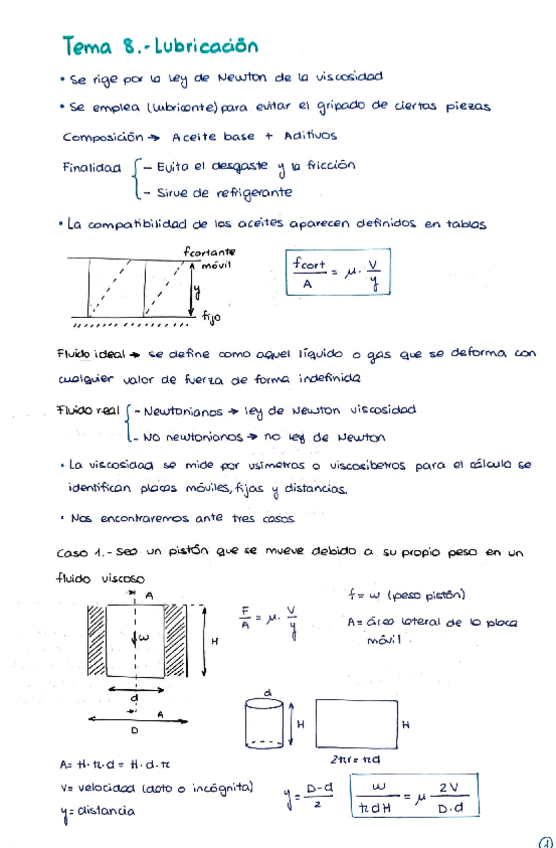 Tema 8.- Lubricación
• Se rige por la Ley de Newton de la viscosidad
• Se emplea (lubricante) para evitar el gripado de ciertas piezas
Composición → Aceite base + Aditivos
Finalidad { - Evita el desgaste y la fricción
- Sirve de refrigerante
• La compatibilidad de los aceites aparecen definidos en tablas
fcortante
móvil
y
fijo
fcort/A = μ · V/y
Fluido ideal → se define como aquel líquido o gas que se deforma con
cualquier valor de fuerza de forma indefinida
Fluido real { - Newtonianos → ley de Newton viscosidad
- No newtonianos → no ley de Newton
• La viscosidad se mide por usimetros o viscosibetros para el cálculo se
identifican placas móviles, fijas y distancias.
• Nos encontraremos ante tres casos
Caso 1.- Sea un pistón que se mueve debido a su propio peso en un
fluido viscoso
A
w
H
d
A
D
F/A = μ · V/y
f = w (peso pistón)
A = área lateral de la placa
móvil.
d
H
H
2πr = πd
A = H·π·d = H·d·π
V = velocidad (dato o incógnita)
y = distancia
y = D-d/2
w/πdH = μ 2V/D.d
1